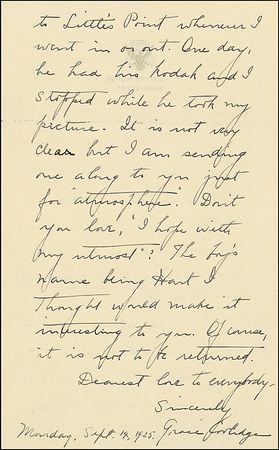 to Little's Point whenever I
went in or out. One day,
he had his kodak and I
stopped while he took my
picture. It is not very
clear but I am sending
one along to you just
for "atmosphere". Don't
you love, "I hope with
my utmost"? The boy's
name being Hoat I
thought would make it
interesting to you. Of course,
it is not to be returned.
Dearest love to everybody—
Sincerely
Monday, Sept. 14, 1925. Grace Coolidge